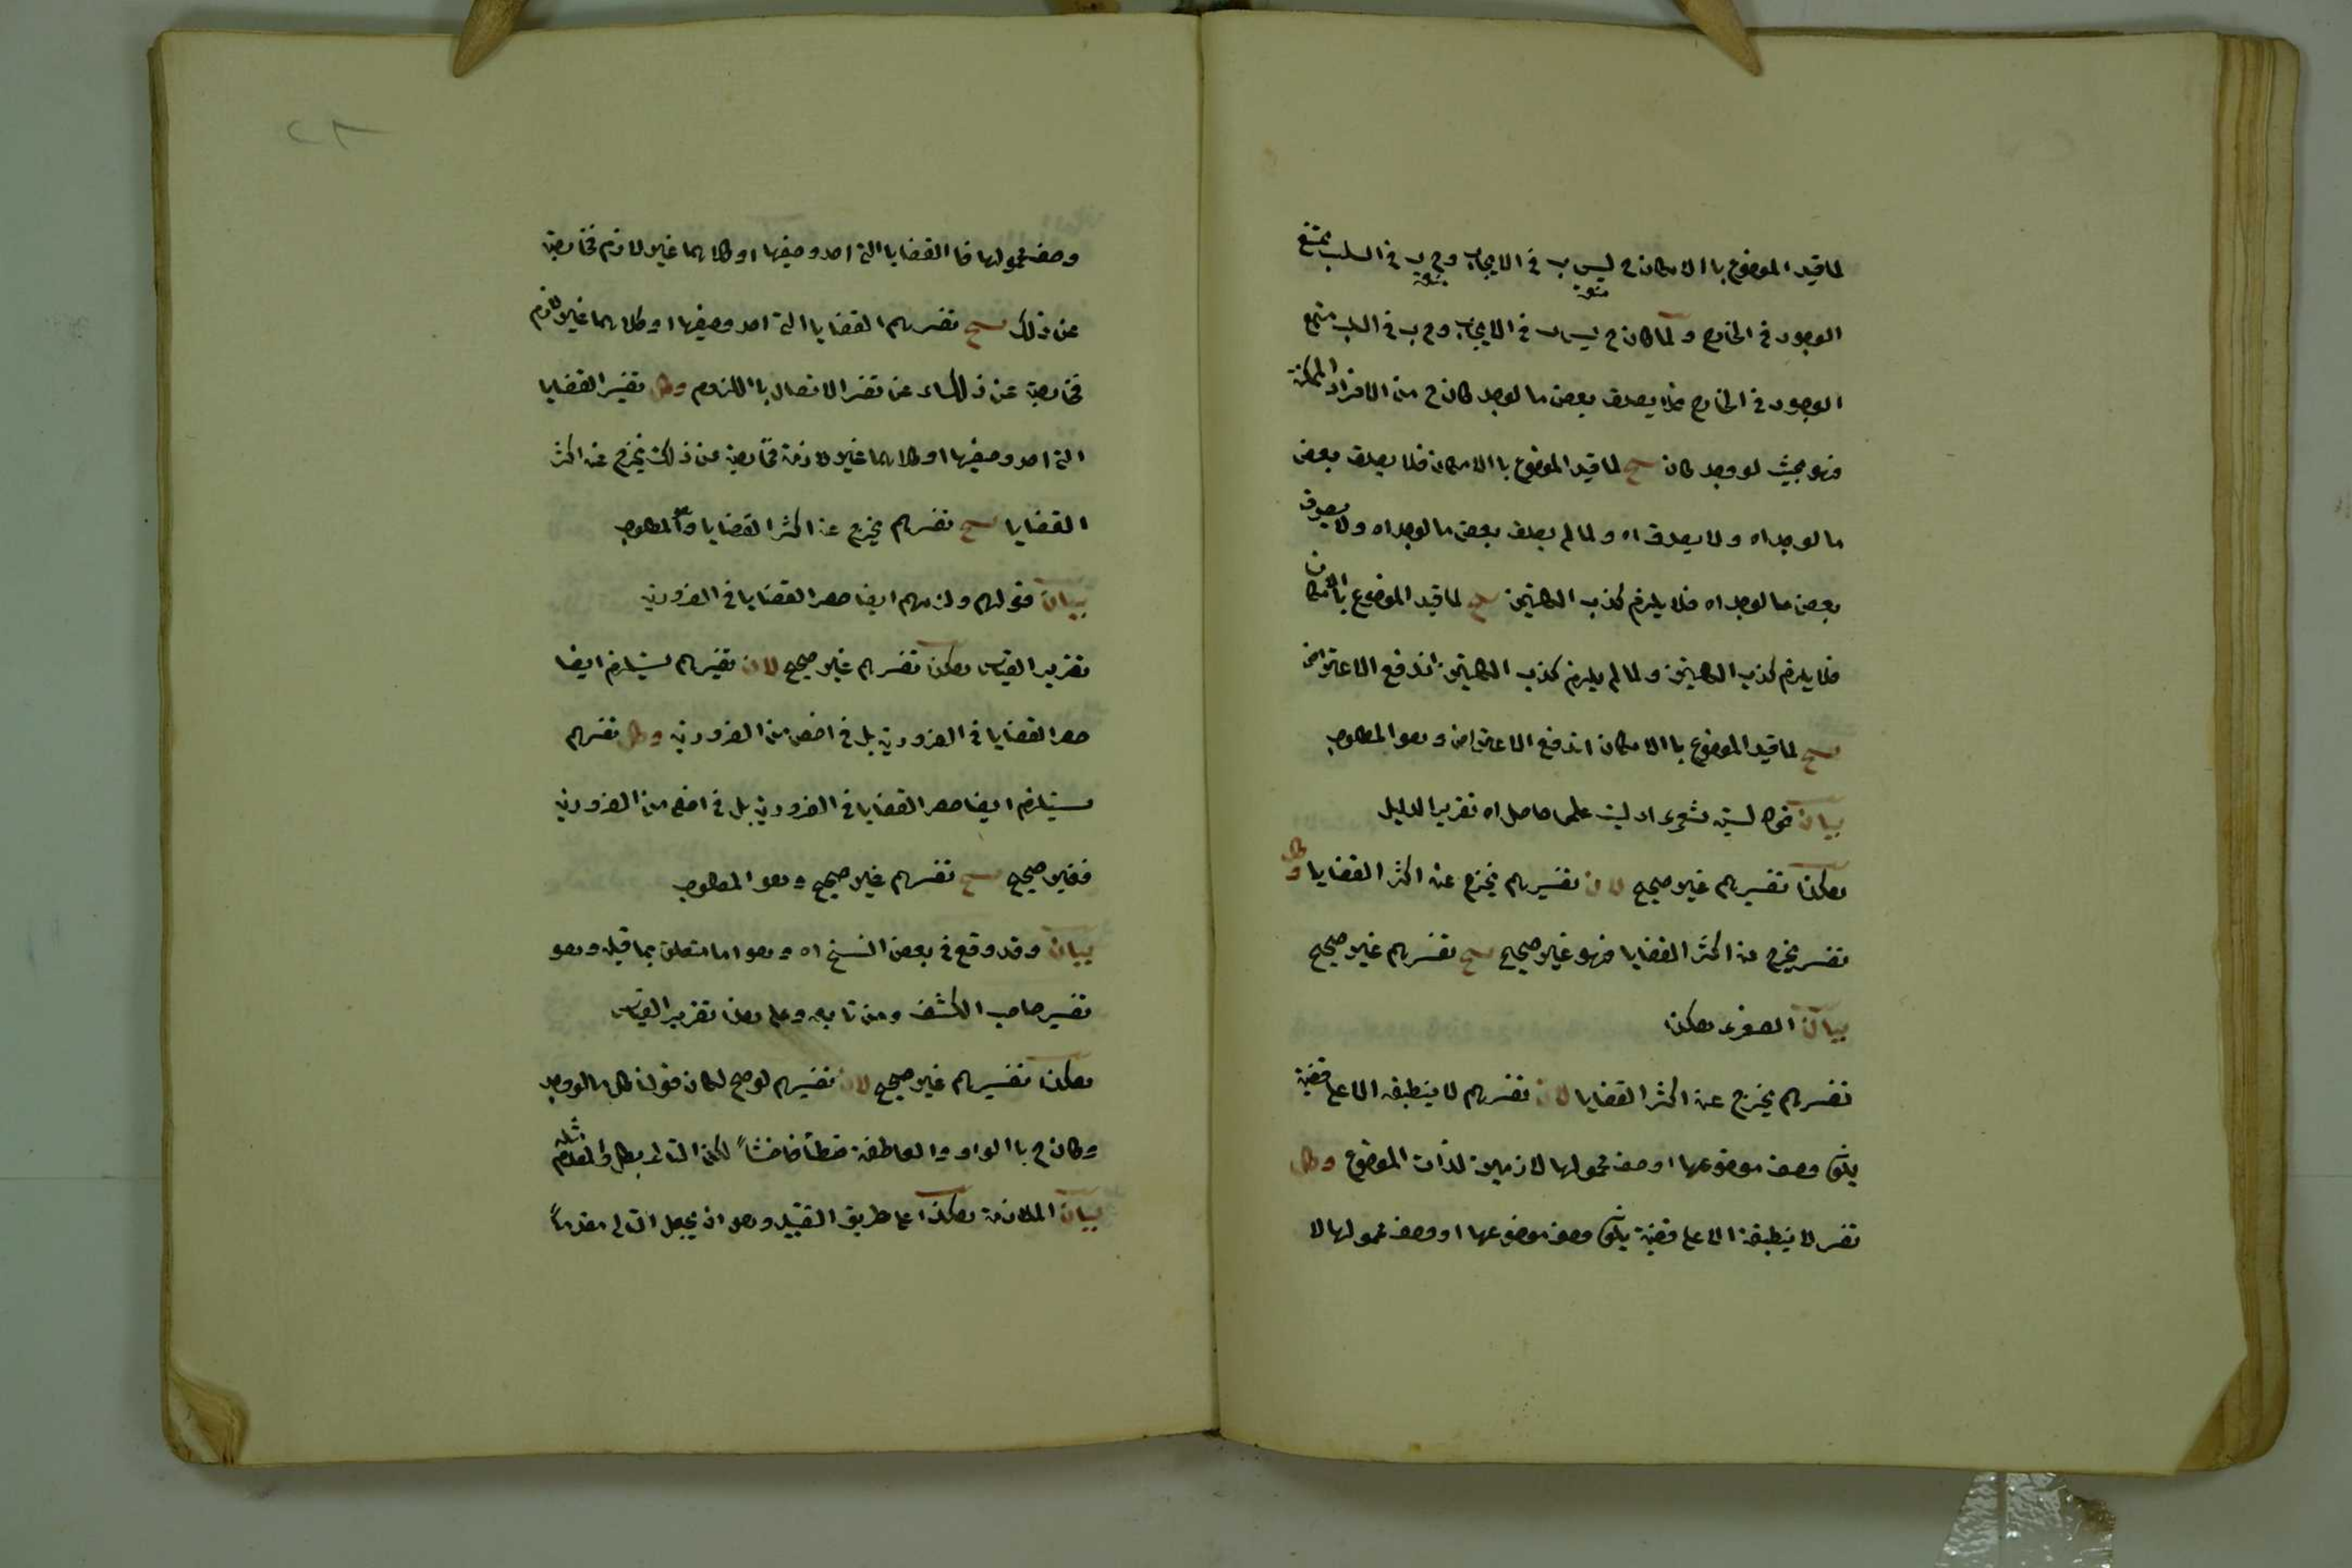 لما قيد الموضوع باالامكان ج ليس ب في الايجاب وج ب في السلب ممتنع
الوجود في الخارج ولما كان ج ليس ب في الايجاب وج ب في السلب ممتنع
الوجود في الخارج فلا يصدق بعض ما لو وجد كان ج من الافراد الممكنة
فهو بحيث لو وجد كان لما قيد الموضوع باالامكان فلا يصدق بعض
ما لو وجد اه ولا يصدق اه ولما لم يصدق بعض ما لو وجد اه ولا يصدق
بعض ما لو وجد اه فلا يلزم كذب الكليتين لما قيد الموضوع باالامكان
فلا يلزم كذب الكليتين ولما لم يلزم كذب الكليتين اندفع الاعتراض
لما قيد الموضوع باالامكان اندفع الاعتراض وهو المطلوب
بيان حاصل اه تقرير الدليل
هكذا تفسيرهم غير صحيح لان تفسيرهم يخرج عنه اكثر القضايا وكل
تفسر يخرج عنه اكثر القضايا فهو غير صحيح تفسرهم غير صحيح
بيان الصغرى هكذا
تفسرهم يخرج عنه اكثر القضايا لان تفسرهم لا ينطبق الا على قضية
يكون وصف موضوعها او وصف محمولها لازمين لذات الموضوع وكل
تفسر لا ينطبق الا على قضية يكون وصف موضوعها او وصف محمولها لا
وصف محمولها فا القضايا التي احد وصفيها او كلاهما غير لازم خارجة
عن ذلك تفسرهم القضايا التي احد وصفيها او كلاهما غير لازم
خارجة عن ذلك عن تفسر الاتصال باللزوم وكل تفسير القضايا
التي احد وصفيها او كلاهما غير لازمة خارجة عن ذلك يخرج عنه اكثر
القضايا تفسرهم يخرج عنه اكثر القضايا وهو المطلوب
بيان قولهم ولزمهم ايضا حصر القضايا في الضرورية
تقرير القياس هكذا تفسرهم غير صحيح لان تفسيرهم يستلزم ايضا
حصر القضايا في الضرورية بل في اخص من الضرورية وكل تفسرهم
يستلزم ايضا حصر القضايا في الضرورية بل في اخص من الضرورية
فغير صحيح تفسرهم غير صحيح وهو المطلوب
بيان وقد وقع في بعض النسخ اه وهو اما متعلق بما قبله وهو
تفسير صاحب الكشف ومن تابعه وعلى هذا تقرير القياس
هكذا تفسيرهم غير صحيح لان تفسيرهم لو صح لكان قولنا كل ما لو وجد
وكان ج باالواو والعاطفة خطأ فاحشاً لكن التالى بطل والمقدم مثله
بيان الملازمة هكذا على طريق القيل وهو ان يجعل التالى مقدماً